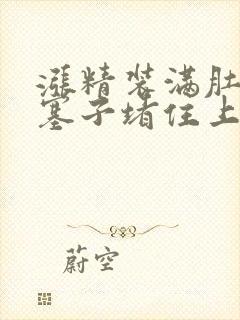 涨精装满肚
塞子堵住上
蔚空